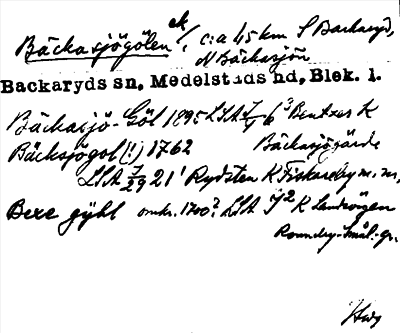 Bäckasjögölen ek. c:a 4,5 km S Backaryd,
N Bäckasjön
Backaryds sn, Medelstads hd, Blek. l.
Bäckasjö-Göl 1895 LSA 7/6³ Bentzes K
Bäcksjögol (!) 1762 Bäckasjögärde
LSA 7/29 21 Rydsten K Fiskareby m. m.
Bexe gyhl omkr. 1700? LSA J² K Landvägen
Ronneby-Smål. gr.